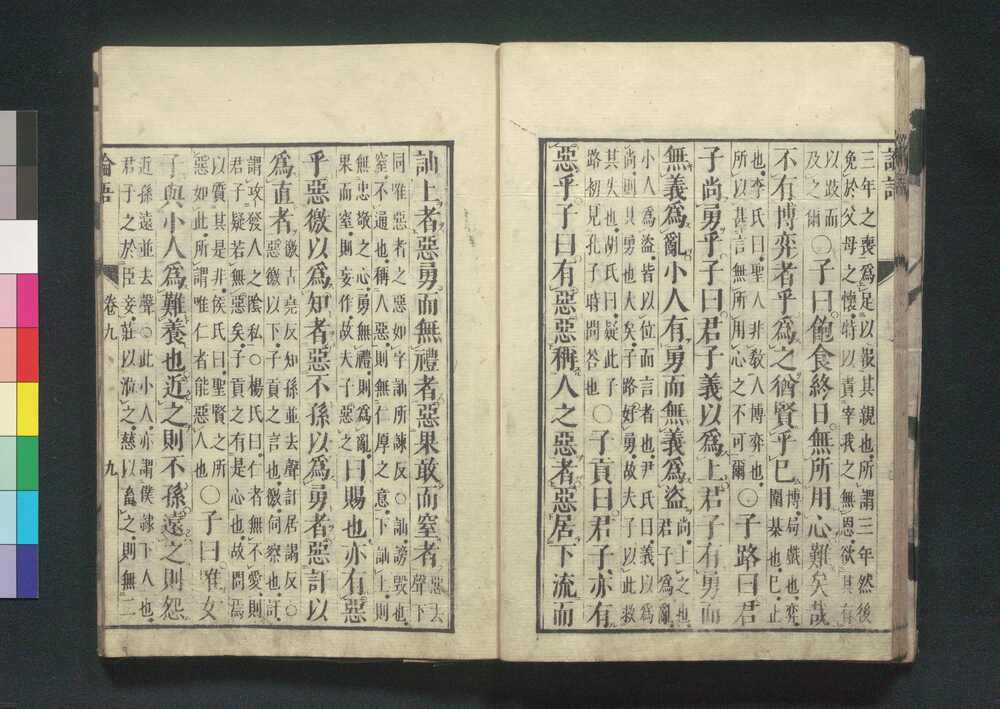 論語
三年之喪爲足以報其親也所謂三年然後
免於父母之懷特以責宰我之無恩欲其有
以跂而
及之爾〇子曰飽食終日無所用心難矣哉
不有博弈者乎爲之猶賢乎已
博局戲也弈
圍棊也已止
也李氏曰聖人非敎人博弈也
所以甚言無所用心之不可爾〇子路曰君
子尚勇乎子曰君子義以爲上君子有勇而
無義爲亂小人有勇而無義爲盜
尚上之也
君子爲亂
小人爲盜皆以位而言者也尹氏曰義以爲
尚則其勇也大矣子路好勇故夫子以此救
其失也胡氏曰疑此子
路初見孔子時問答也〇子貢曰君子亦有
惡乎子曰有惡惡稱人之惡者惡居下流而
訕上者惡勇而無禮者惡果敢而窒者
惡去
聲下
同唯惡者之惡如字訕所諫反〇訕謗毀也
窒不通也稱人惡則無仁厚之意下訕上則
無忠敬之心勇無禮則爲亂
果而窒則妄作故夫子惡之曰賜也亦有惡
乎惡徼以爲知者惡不孫以爲勇者惡訐以
爲直者
徼古堯反知孫並去聲訐居謁反〇
惡徼以下子貢之言也徼伺察也訐
謂攻發人之陰私〇楊氏曰仁者無不愛則
君子疑若無惡矣子貢之有是心也故問焉
以質其是非侯氏曰聖賢之所
惡如此所謂唯仁者能惡人也〇子曰唯女
子與小人爲難養也近之則不孫遠之則怨
近孫遠並去聲〇此小人亦謂僕隸下人也
君子之於臣妾莊以涖之慈以畜之則無二
論語
卷九
九